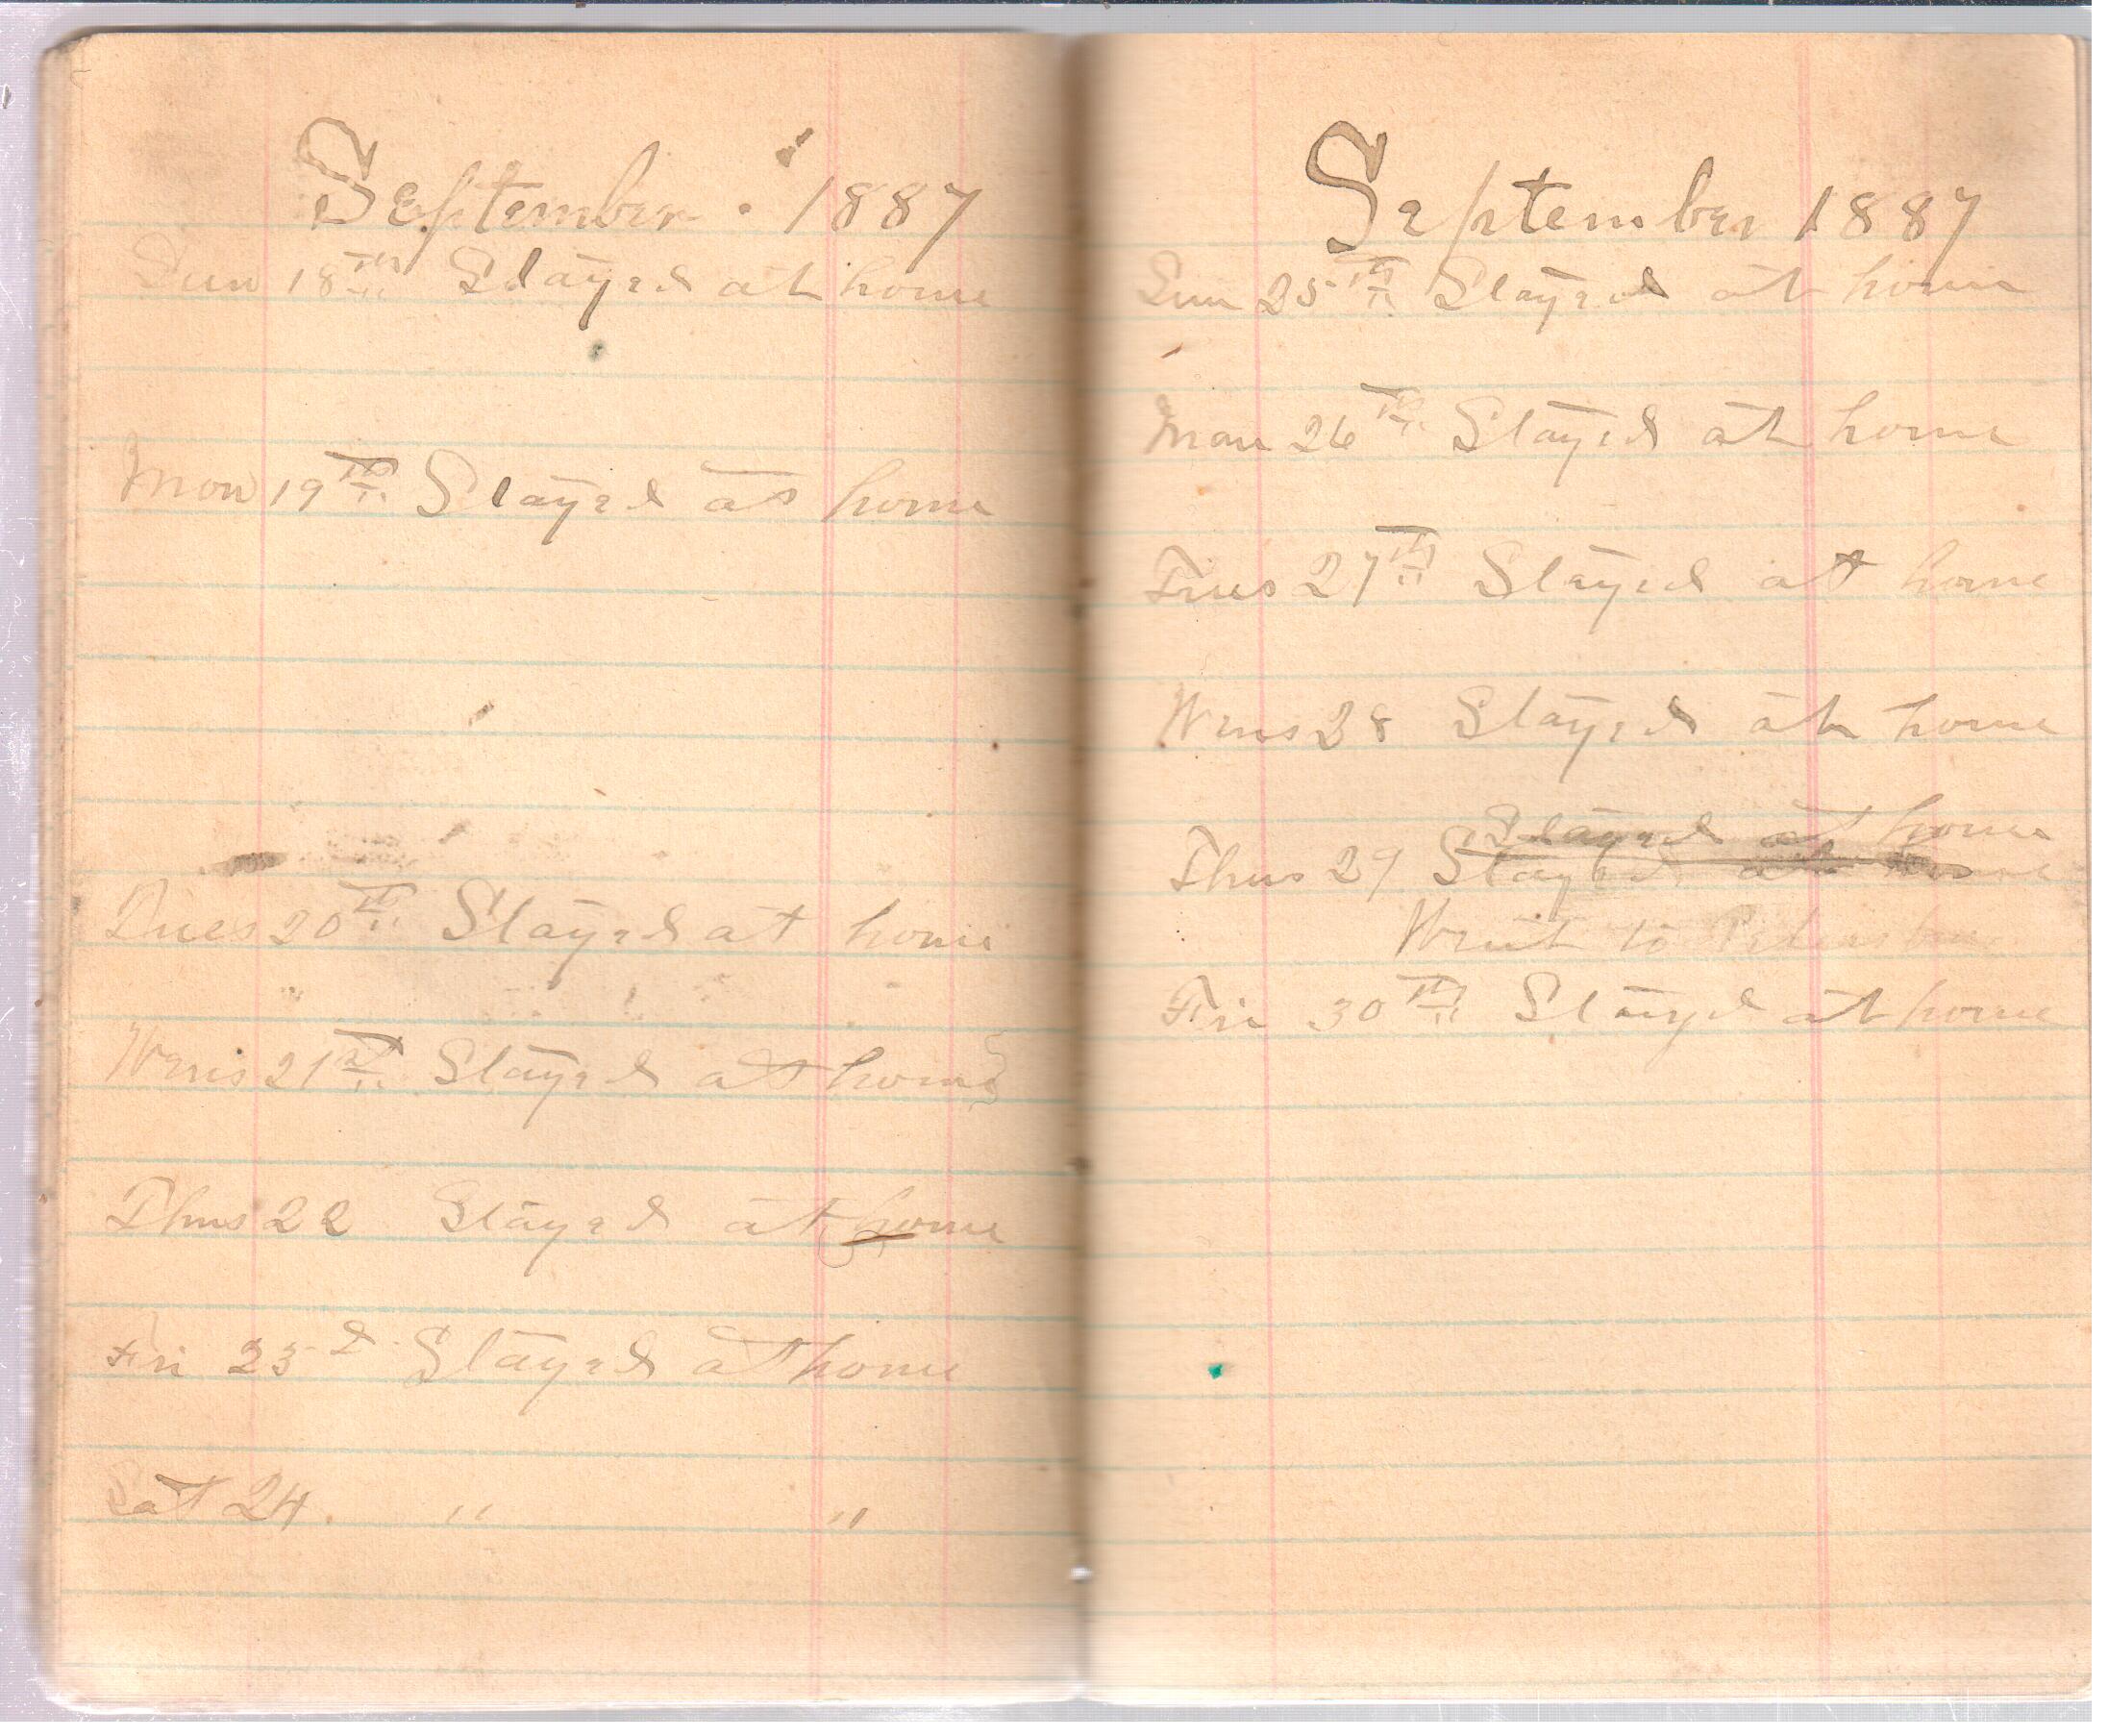 September. 1887
Sun 18th Stayed at home
Mon 19th Stayed at home
Tues 20th Stayed at home
Wens 21st Stayed at home
Thus 22 Stayed at home
Fri 23d Stayed at home
Sat 24. " "
September 1887
Sun 25th Stayed at home
Mon 26th Stayed at home
Tues 27th Stayed at home
Wens 28 Stayed at home
Stayed at home
Thus 29 Stayed at home
Went to
Fri 30th Stayed at home